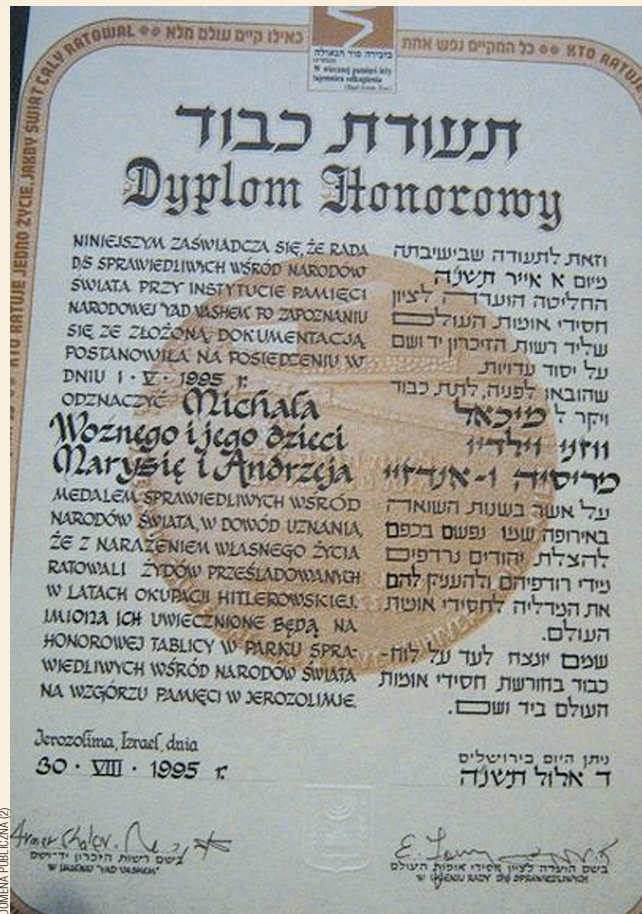 KTO RATUJE JEDNO ŻYCIE, JAKBY ŚWIAT CAŁY RATOWAŁ
כאילו קיים עולם מלא
כל המקיים נפש אחת
KTO
בזכירה סוד הגאולה
W wiecznej pamięci leży
tajemnica odkupienia
תעודת כבוד
Dyplom Honorowy
NINIEJSZYM ZAŚWIADCZA SIĘ, ŻE RADA
D/S SPRAWIEDLIWYCH WŚRÓD NARODÓW
ŚWIATA PRZY INSTYTUCIE PAMIĘCI
NARODOWEJ YAD VASHEM PO ZAPOZNANIU
SIĘ ZE ZŁOŻONĄ DOKUMENTACJĄ
POSTANOWIŁA NA POSIEDZENIU W
DNIU 1 · V · 1995 r.
ODZNACZYĆ Michała
Woźnego i jego dzieci
Marysię i Andrzeja
MEDALEM SPRAWIEDLIWYCH WŚRÓD
NARODÓW ŚWIATA, W DOWÓD UZNANIA,
ŻE Z NARAŻENIEM WŁASNEGO ŻYCIA
RATOWALI ŻYDÓW PRZEŚLADOWANYCH
W LATACH OKUPACJI HITLEROWSKIEJ.
IMIONA ICH UWIECZNIONE BĘDĄ NA
HONOROWEJ TABLICY W PARKU SPRA-
WIEDLIWYCH WŚRÓD NARODÓW ŚWIATA
NA WZGÓRZU PAMIĘCI W JEROZOLIMIE.
וזאת לתעודה שבישיבתה
מיום א אייר תשנ״ה
החליטה הועדה לציון
חסידי אומות העולם
שליד רשות הזיכרון יד ושם
על יסוד עדויות
שהובאו לפניה, לתת כבוד
ויקר ל מיכאל
ווזני וילדיו
מריסיה ו-אנדזיי
על אשר בשנות השואה
באירופה שמו נפשם בכפם
להצלת יהודים נרדפים
מידי רודפיהם ולהעניק להם
את המדליה לחסידי אומות
העולם.
שמם יונצח לעד על לוח-
כבוד בחורשת חסידי אומות
העולם ביד ושם.
Jerozolima, Izrael, dnia
30 · VIII · 1995 r.
ניתן היום בירושלים
ד אלול תשנ״ה
בשם רשות הזיכרון יד-ושם
W IMIENIU "YAD VASHEM"
בשם הועדה לציון חסידי אומות העולם
W IMIENIU RADY D/S SPRAWIEDLIWYCH
DOMENA PUBLICZNA (2)